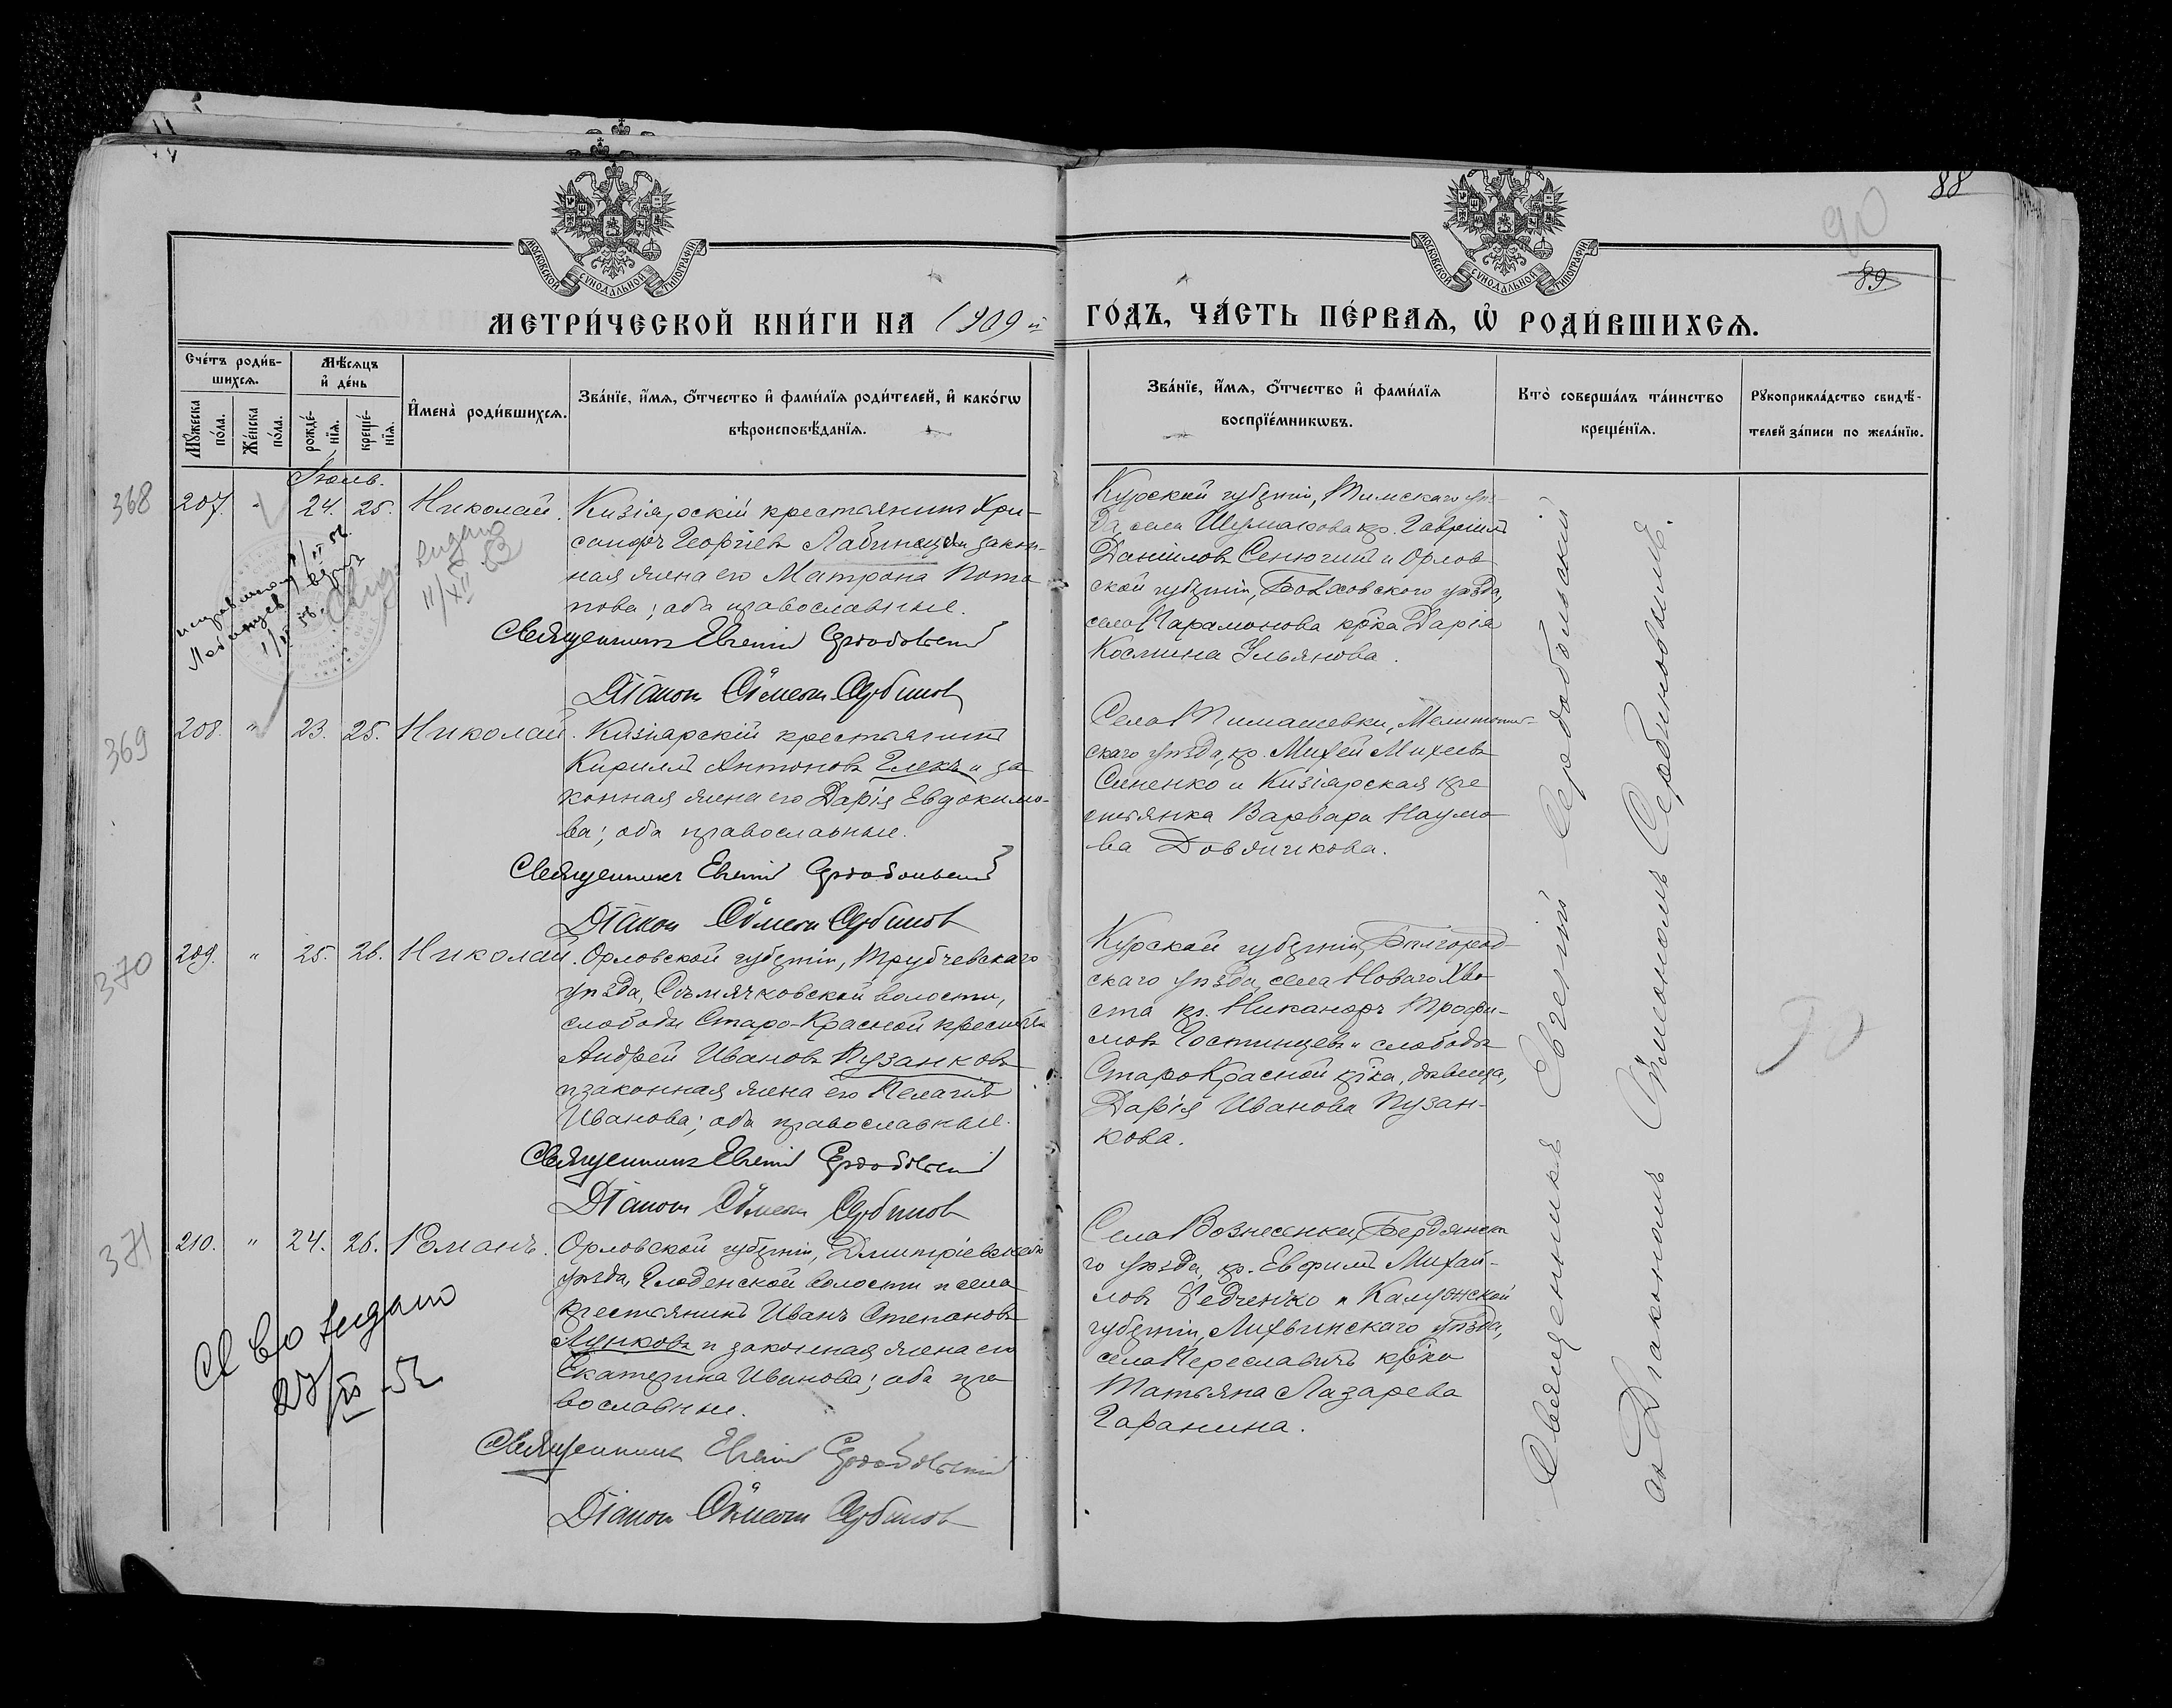 88
90
89
МОСКОВСКОЙ СУНОДАЛЬНОЙ ТИПОГРАФІИ
МОСКОВСКОЙ СУНОДАЛЬНОЙ ТИПОГРАФІИ
МЕТРИ́ЧЕСКОЙ КНИ́ГИ НА 1909 й
ГО́ДЪ, ЧА́СТЬ ПЕ́РВАѦ, Ѡ҆ РОДИ́ВШИХСѦ.
Сче́тъ роди́в-
шихсѧ.
Мꙋ́жеска по́ла.
Же́нска по́ла.
Мѣ́сѧцъ
и҆ де́нь
рожде́-нїѧ.
креще́-нїѧ.
И҆мена̀ роди́вшихсѧ.
Зва́нїе, и҆́мѧ, ѻ҆́тчество и҆ фами́лїѧ роди́телей, и҆ како́гѡ
вѣроисповѣ́данїѧ.
Зва́нїе, и҆́мѧ, ѻ҆́тчество и҆ фами́лїѧ
воспрїе́мникѡвъ.
Кто̀ соверша́лъ та́инство
креще́нїѧ.
Рꙋкоприкла́дство свидѣ́-
телей за́писи по жела́нїю.
Іюль.
368
207. " 24. 25. Николай.
Кизіярскій крестьянинъ Хри-
санфъ Георгіевъ Лабинцевъ и закон-
ная жена его Матрона Пота-
пова; оба православные.
Священникъ Евгеній Сердобольскій
Діаконъ Сѵмеонъ Сербиновъ
Курской губерніи, Тимскаго уѣз-
да, села Шумакова кр. Гавріилъ
Даниловъ Сенюгинъ и Орлов
ской губерніи, Болховского уѣзда,
села Парамонова кр-ка Дарія
Космина Ульянова.
выдано
11/XII 53
369
208. " 23. 25. Николай.
Кизіарскій крестьянинъ
Кириллъ Антоновъ Глекъ и за
конная жена его Дарія Евдокимо-
ва; оба православные.
Священникъ Евгеній Сердобольскій
Діаконъ Сѵмеонъ Сербиновъ
Села Тимашевки, Мелитополь-
скаго уѣзда, кр. Михей Михеевъ
Синенко и Кизіярская кре
стьянка Варвара Наумо
ва Довяшкова.
370
209. " 25. 26. Николай.
Орловской губерніи, Трубчевскаго
уѣзда, Сѣмячковской волости,
слободы Старо-Красной крестья
Андрей Ивановъ Пузанковъ
и законная жена его Пелагія
Иванова; оба православные.
Священникъ Евгеній Сердобольскій
Діаконъ Сѵмеонъ Сербиновъ
Курской губерніи, Бѣлгород-
скаго уѣзда, села Новаго Хво
ста кр. Никаноръ Трофи-
мовъ Гостинцевъ и слободы
Старо Красной кр-ка, дѣвица,
Дарія Иванова Пузан-
кова.
371
210. " 24. 26. Романъ.
Орловской губерніи, Дмитріевскаго
уѣзда, Глоденской волости и села
крестьянинъ Иванъ Степановъ
Лунковъ и законная жена его
Екатерина Иванова; оба пра
вославные.
Священникъ Евгеній Сердобольскій
Діаконъ Сѵмеонъ Сербиновъ
Села Вознесенки, Бердянска
го уѣзда, кр. Евфимъ Михай-
ловъ Редченко и Калужской
губерніи, Лихвинскаго уѣзда,
села Переславичь кр-ка
Татьяна Лазарева
Гаранина.
Св во выдано
Священникъ Евгеній Сердобольскій
съ Діакономъ Сѵмеономъ Сербиновымъ.
90